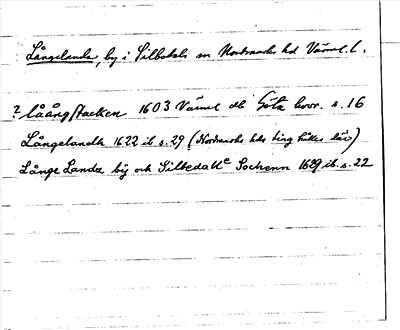 Långelanda, by i Silbodals sn Nordmarks hd Värml. l.
? låångstacken 1603 Värml db Göta hovr. s. 16
Långelandh 1622 ib. s. 29 (Nordmarks hds ting hålles där)
Långe Landa bÿ och Silbedalle Sochenn 1629 ib. s. 22